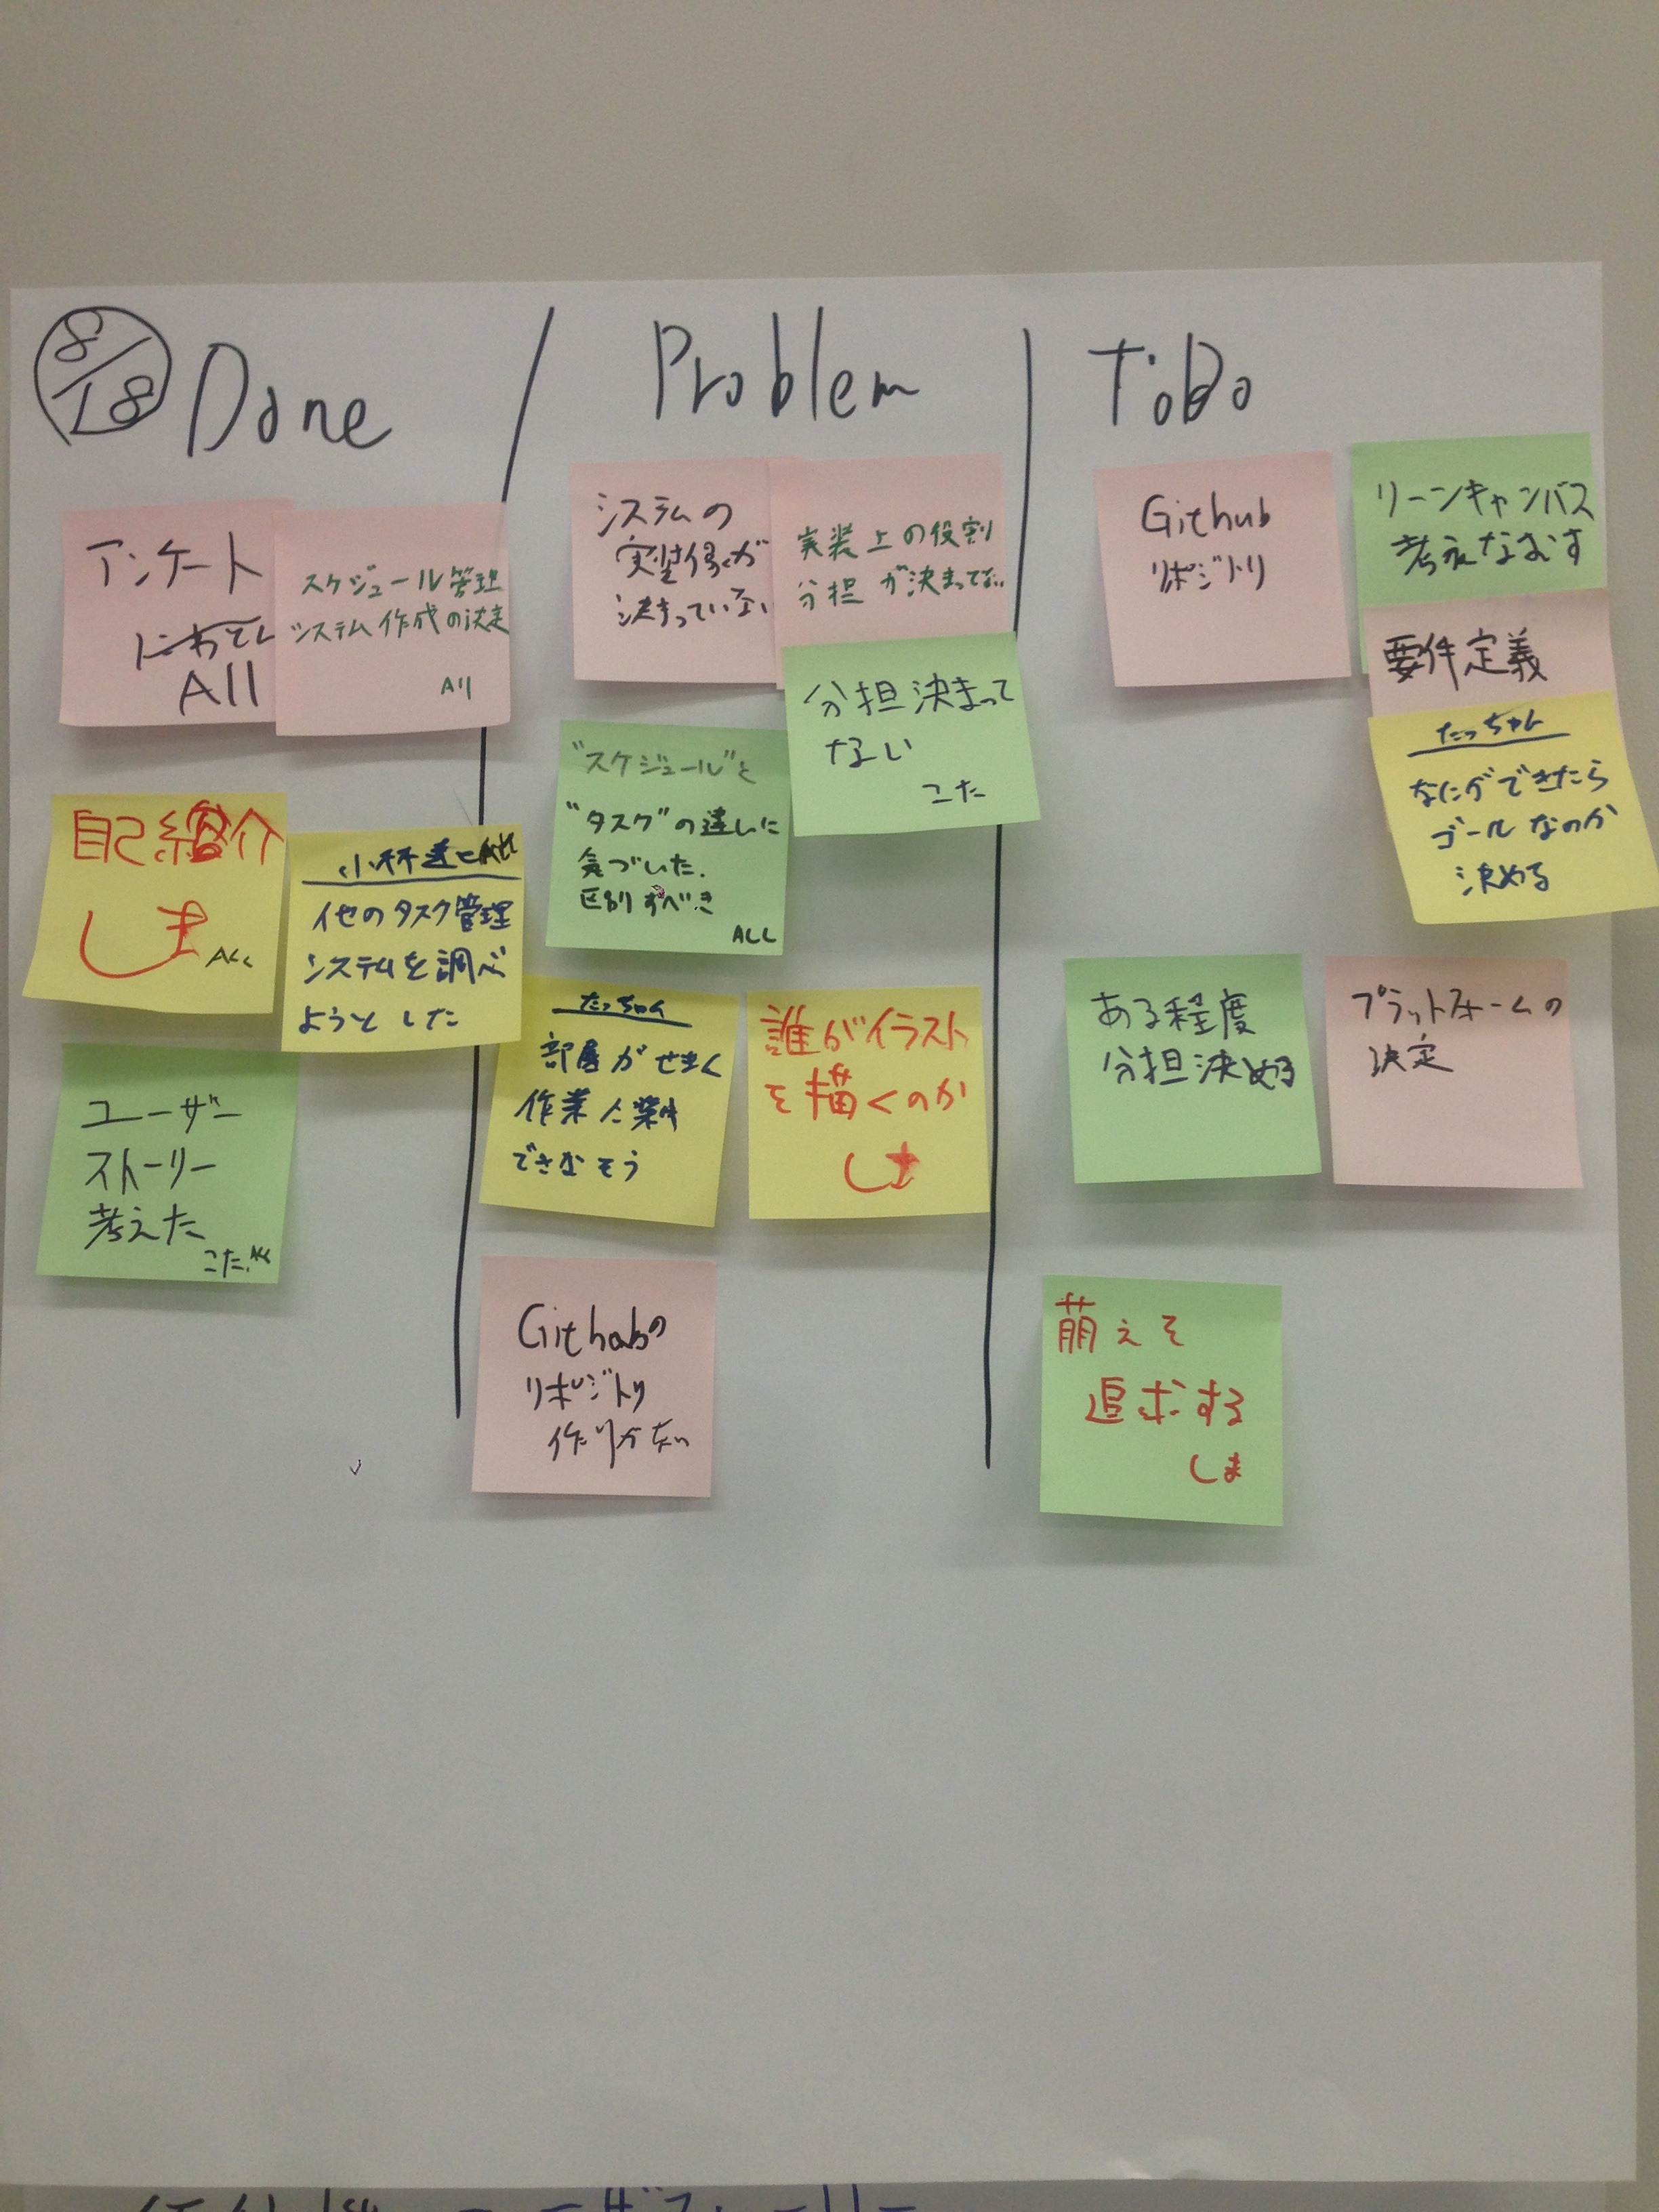 8/18
Done
Problem
ToDo
アンケート
All
スケジュール管理
システム作成の決定
All
自己紹介
しま
ALL
小林
ALL
他のタスク管理
システムを調べ
ようとした
ユーザー
ストーリー
考えた
こた. ALL
システムの
決まっていない
実装上の役割
分担が決まってない
分担決まって
ない
こた
"スケジュール"と
"タスク"の違いに
気づいた.
区別すべき
ALL
たっちゃん
部屋がせまく
作業
できなそう
誰がイラスト
を描くのか
しま
Githubの
リポジトリ
作りかた
Github
リポジトリ
リーンキャンバス
考えなおす
要件定義
たっちゃん
なにができたら
ゴールなのか
決める
ある程度
分担決める
プラットフォームの
決定
萌えを
追求する
しま